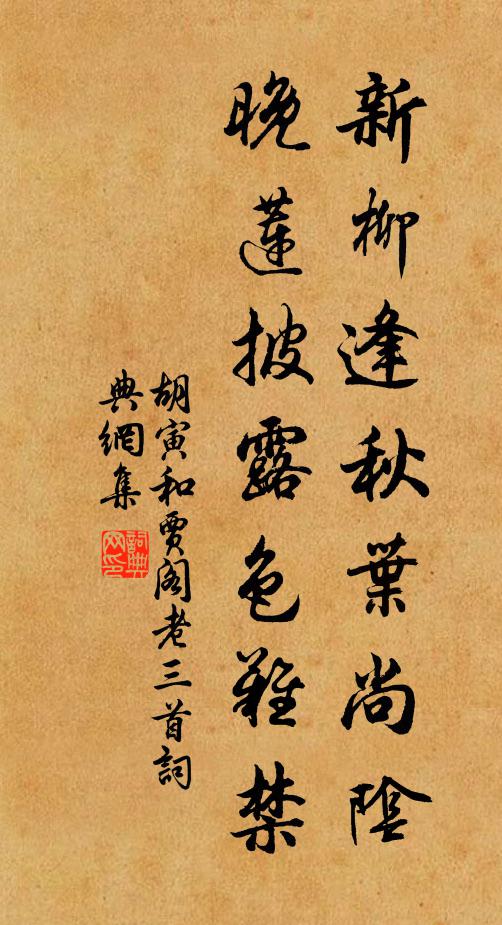 新柳逢秋葉尚陰
晚蓮披露色難禁
胡寅和賈閣老三首詞
典網集
詞典网印